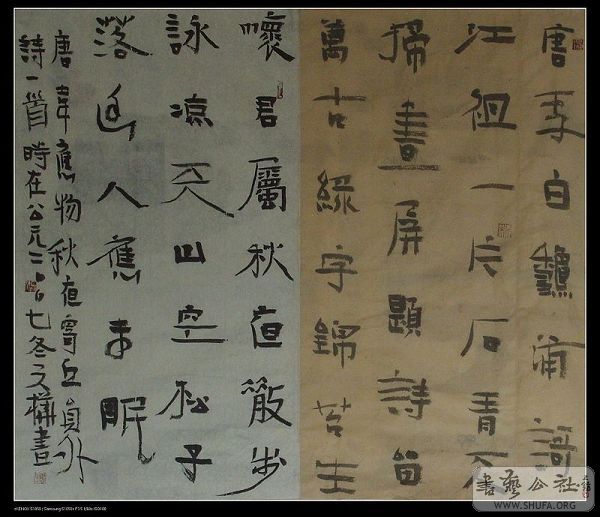 唐李白龝浦謌
江祖一片石青天
掃畫屏題詩留
萬古綠字錦苔生
懷君屬秋夜散步
詠涼天山空松子
落幽人應未眠
唐韋應物秋夜寄丘員外
詩一首時在公元二〇〇七冬文書
書藝公社
WWW.SHUFA.ORG